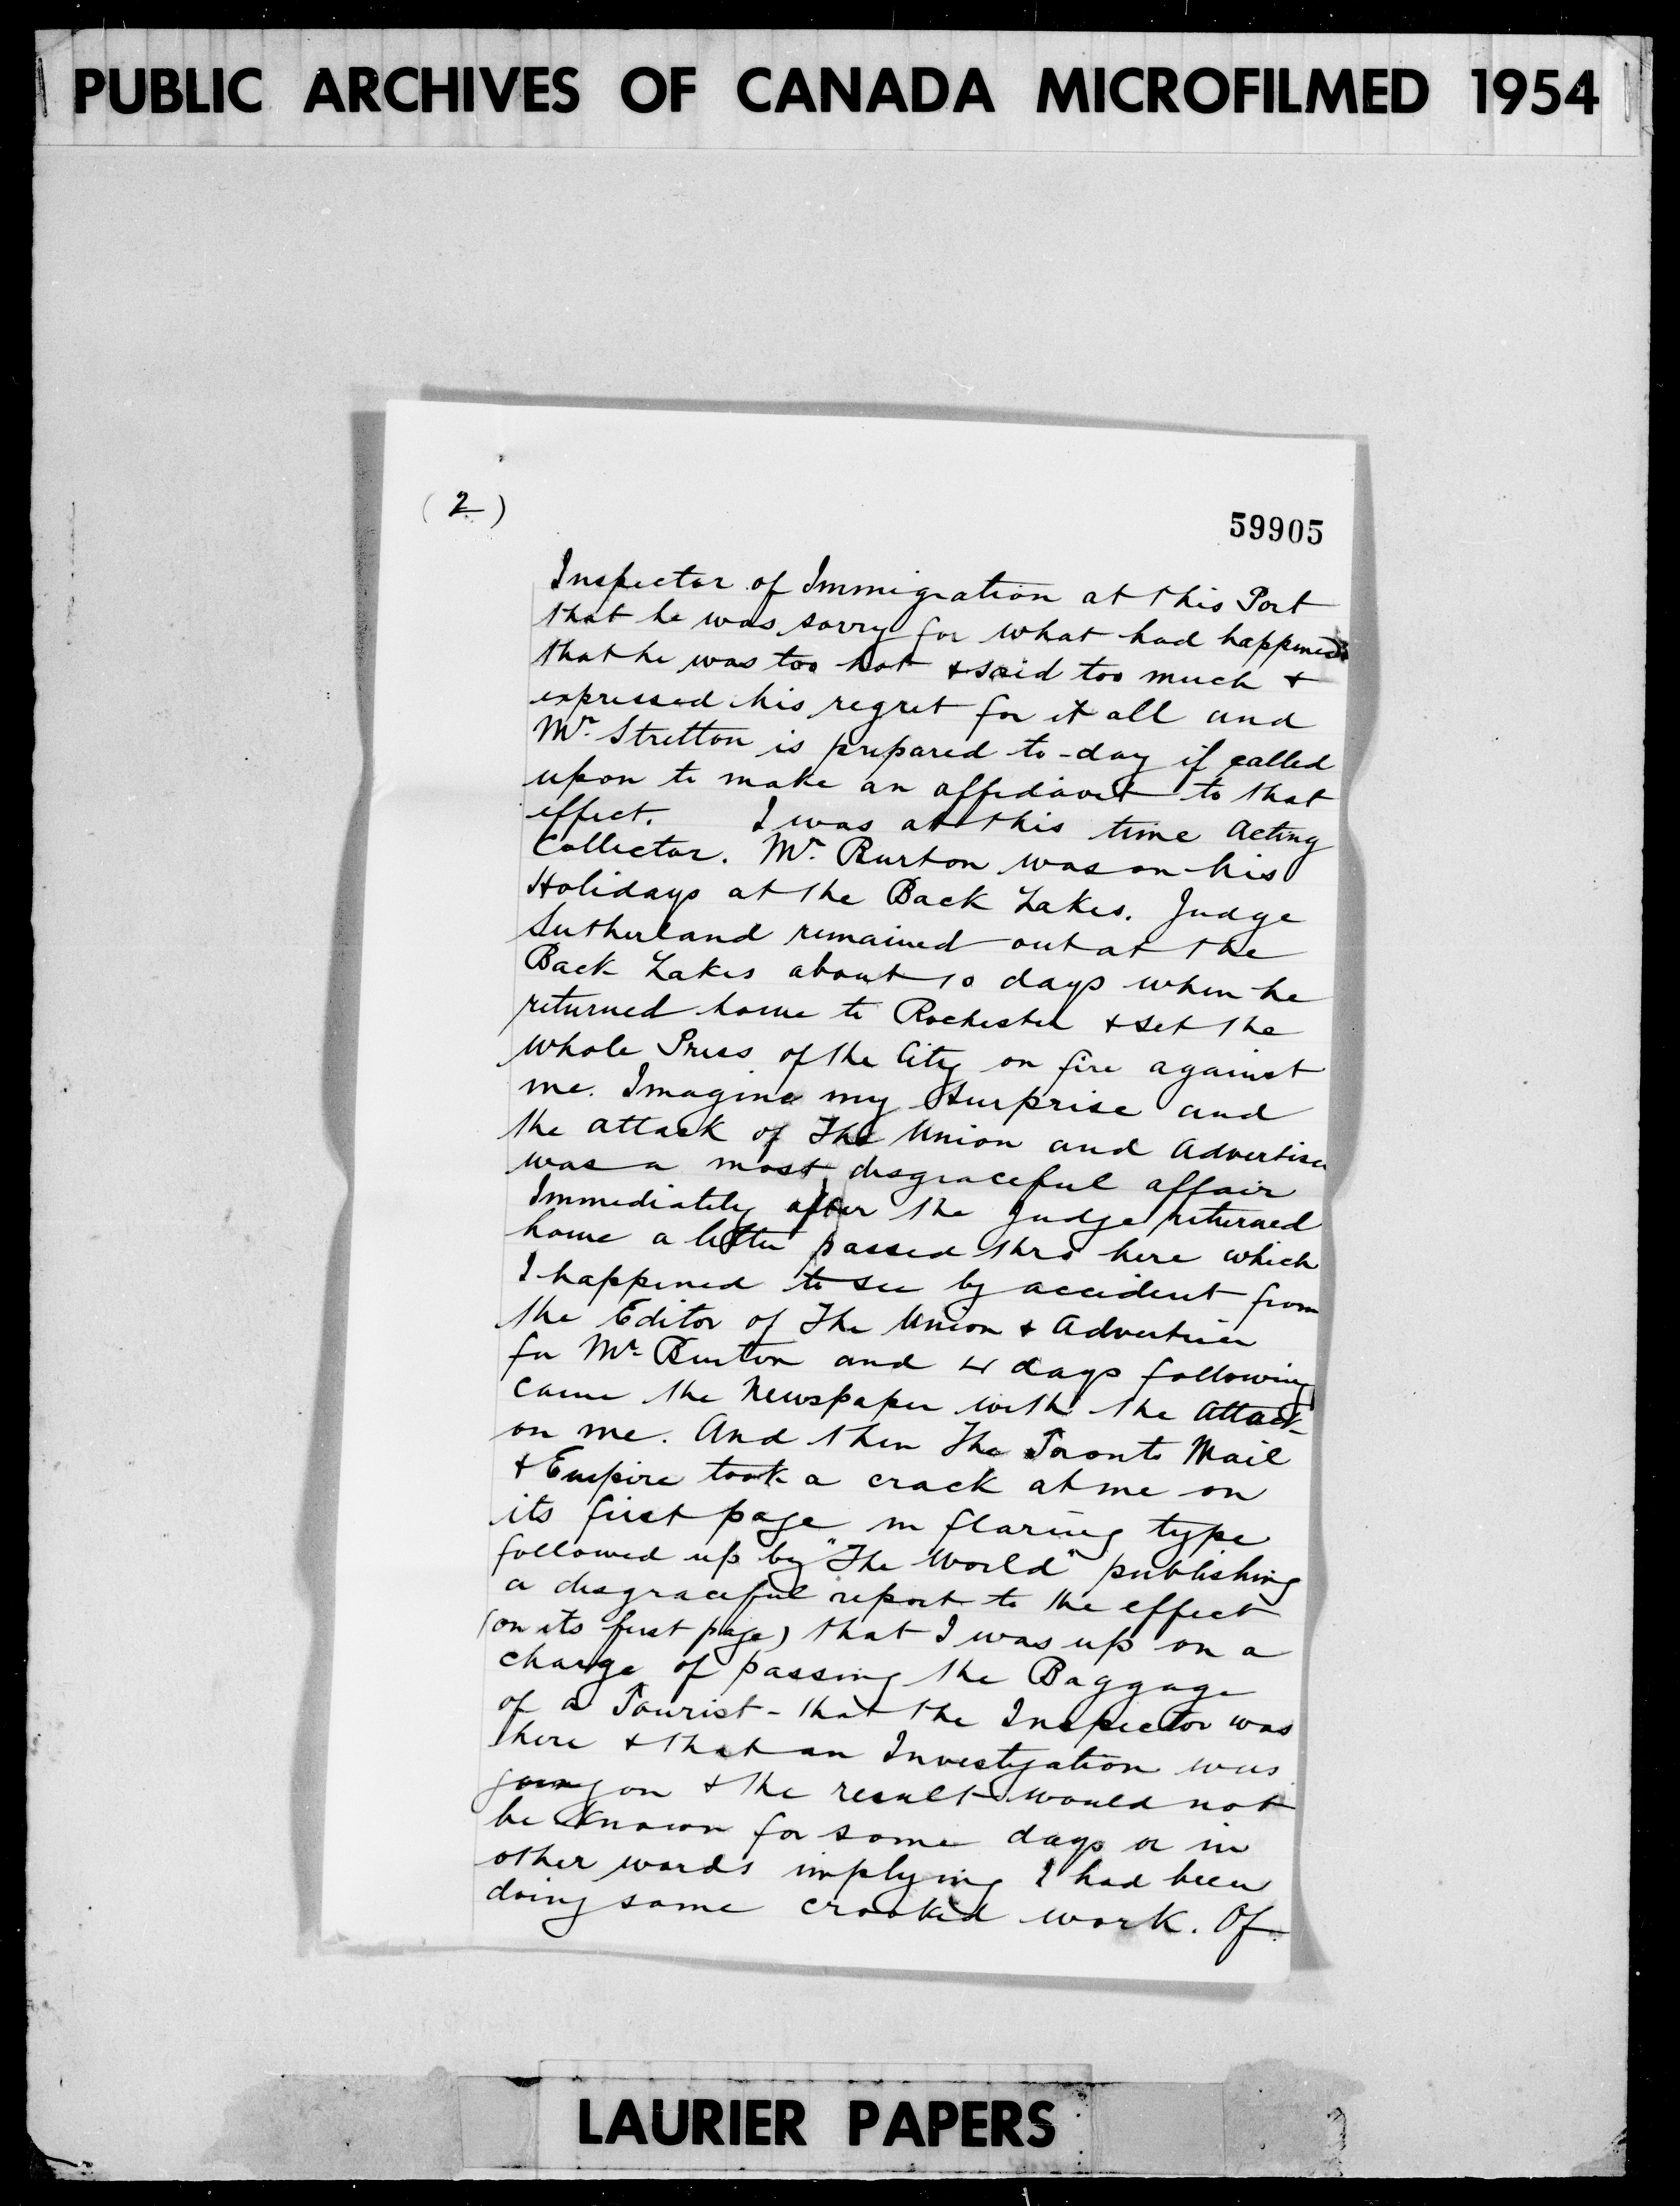 PUBLIC ARCHIVES OF CANADA MICROFILMED 1954
(2)
59905
Inspector of Immigration at this Port
that he was sorry for what had happened
that he was too hot & said too much &
expressed his regret for it all and
Mr. Stretton is prepared to-day if called
upon to make an affidavit to that
effect. I was at this time Acting
Collector. Mr. Burton was on his
Holidays at the Back Lakes. Judge
Sutherland remained out at the
Back Lakes about 10 days when he
returned home to Rochester & set the
whole Press of the City on fire against
me. Imagine my Surprise and
the attack of The Union and Advertiser
was a most disgraceful affair
Immediately after the Judge returned
home a letter passed thro here which
I happened to see by accident from
the Editor of The Union & Advertiser
for Mr. Burton and 4 days following
came the Newspaper with the Attack
on me. And then The Toronto Mail
& Empire took a crack at me on
its first page in flaring type
followed up by "The World" publishing
a disgraceful report to the effect
(on its first page) that I was up on a
charge of passing the Baggage
of a Tourist - that the Inspector was
here & that an Investigation was
going on & the result would not
be known for some days or in
other words implying I had been
doing some crooked work. Of
LAURIER PAPERS